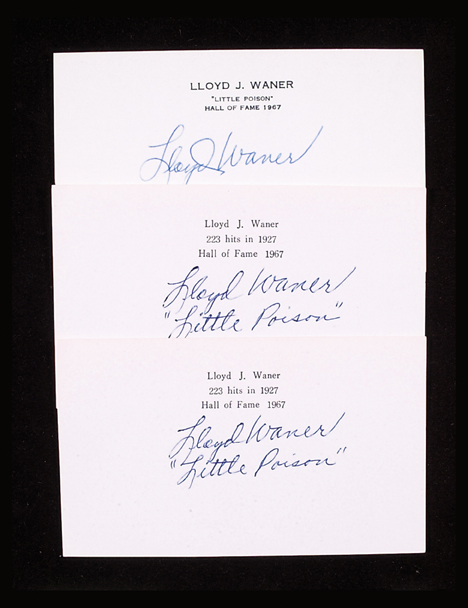 LLOYD J. WANER
"LITTLE POISON"
HALL OF FAME 1967
Lloyd Waner
Lloyd J. Waner
223 hits in 1927
Hall of Fame 1967
Lloyd Waner
"Little Poison"
Lloyd J. Waner
223 hits in 1927
Hall of Fame 1967
Lloyd Waner
"Little Poison"